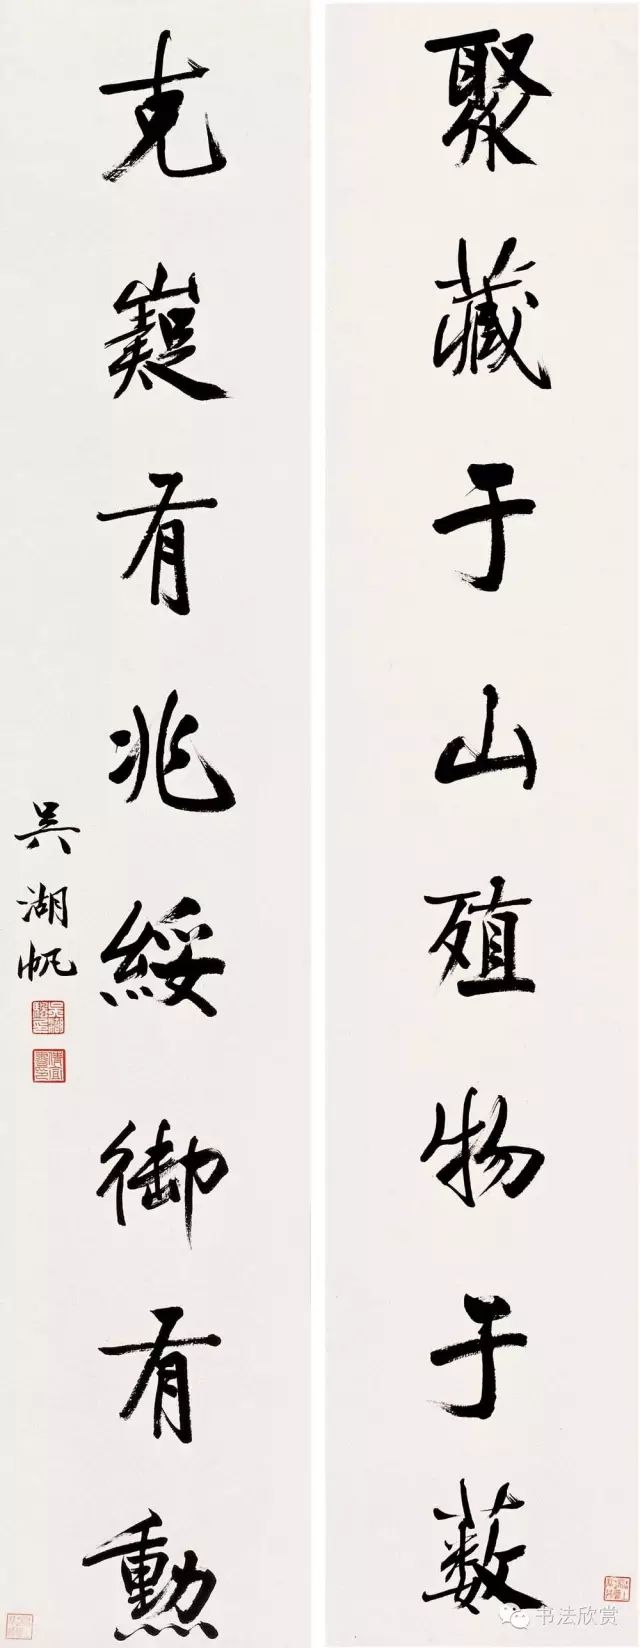 聚藏于山殖物于薮
克嶷有兆綏御有勳
吳湖帆
书法欣赏